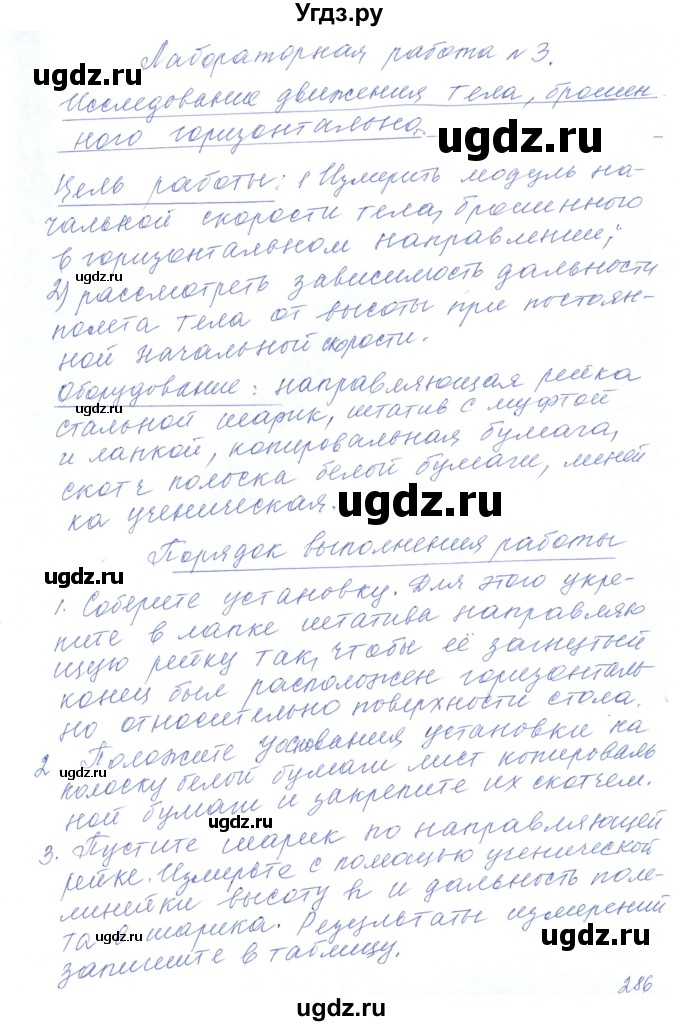 Угдз.ру
Лабораторная работа №3.
Исследование движения тела, брошен
ного горизонтально.
Цель работы: 1 Измерить модуль на-
чальной скорости тела, брошенного
в горизонтальном направлении;
2) рассмотреть зависимость дальности
полета тела от высоты при постоян-
ной начальной скорости.
Оборудование: направляющая рейка
стальной шарик, штатив с муфтой
и лапкой, копировальная бумага,
скотч полоска белой бумаги, линей
ка ученическая.
Порядок выполнения работы
1. Соберите установку. Для этого укре-
пите в лапке штатива направляю
щую рейку так, чтобы её загнутый
конец был расположен горизонталь
но относительно поверхности стола.
2 Положите у основания установки на
полоску белой бумаги лист копироваль
ной бумаги и закрепите их скотчем.
3. Пустите шарик по направляющей
рейке. Измерьте с помощью ученической
линейки высоту h и дальность поле-
та l шарика. Результаты измерений
запишите в таблицу.
286
ugdz.ru
ugdz.ru
ugdz.ru
ugdz.ru
ugdz.ru
ugdz.ru
ugdz.ru
ugdz.ru
ugdz.ru
ugdz.ru
ugdz.ru
ugdz.ru
ugdz.ru
ugdz.ru